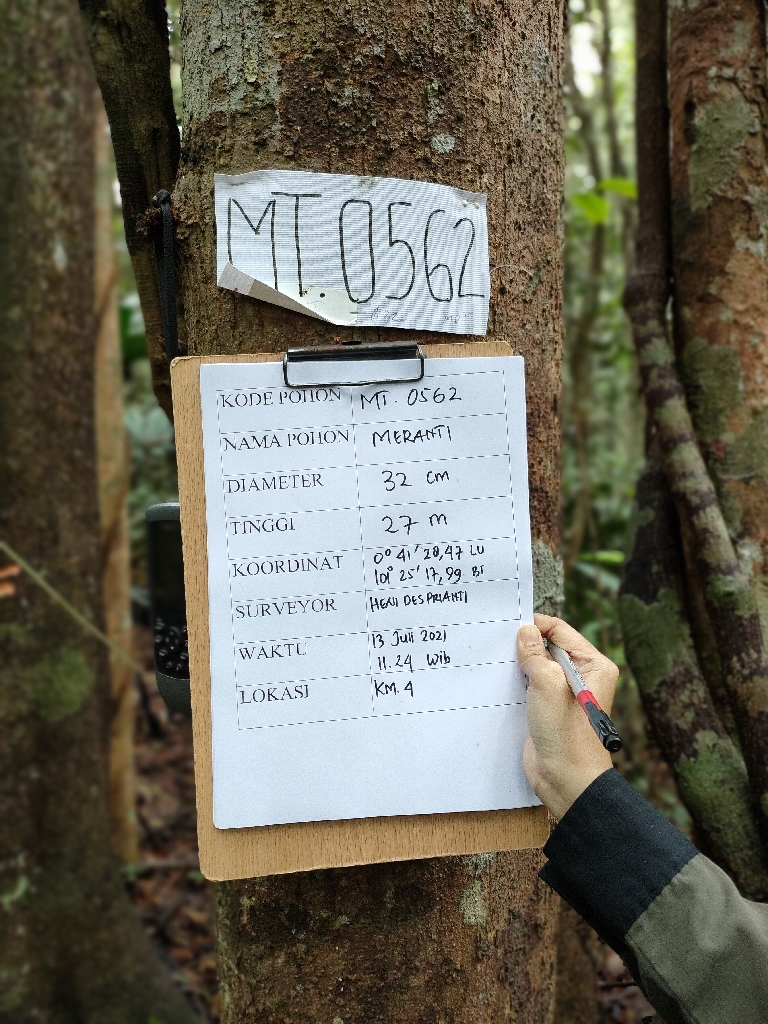 MT 0562
KODE POHON MT. 0562
NAMA POHON MERANTI
DIAMETER 32 cm
TINGGI 27 m
KOORDINAT 0° 41' 28,47 LU
101° 25' 17,99 BT
SURVEYOR HENI DESPRIANTI
WAKTU 13 Juli 2021
11.24 Wib
LOKASI KM. 4